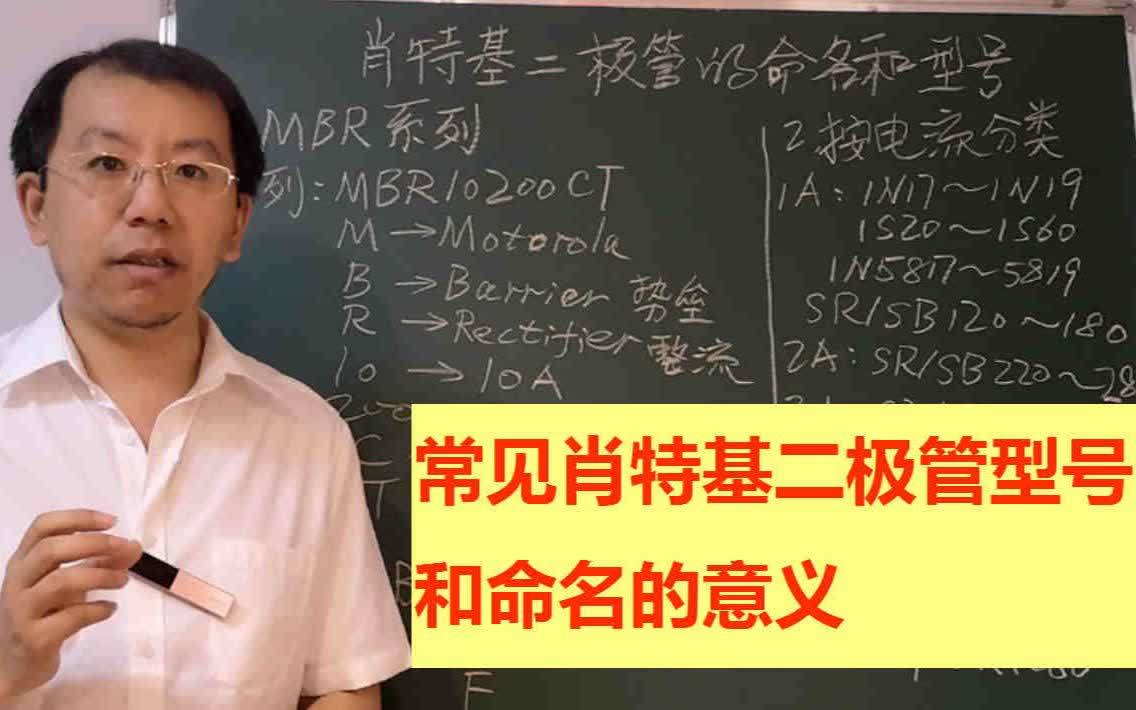 肖特基二极管的命名和型号
MBR系列
列:MBR10200CT
M→Motorola
B→Barrier 势垒
R→Rectifier 整流
10→10A
200
C
T
2按电流分类
1A:1N17～1N19
1S20～1S60
1N5817～5819
SR/SB120～180
2A:SR/SB220～28
常见肖特基二极管型号
和命名的意义
F